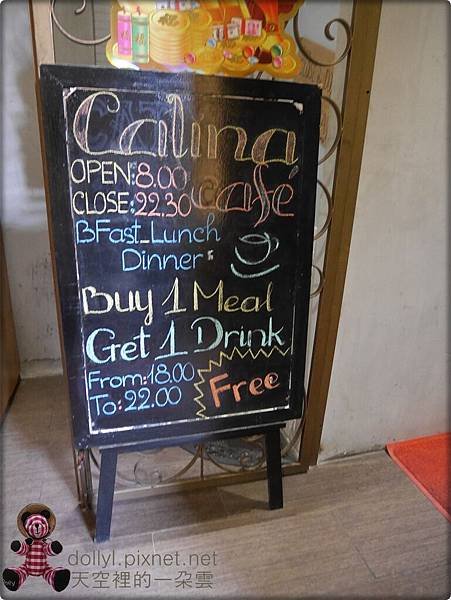 Calina
OPEN:8.00
CLOSE:22.30
café
BFast_Lunch
Dinner
Buy 1 Meal
Get 1 Drink
From:18.00
To:22.00
Free
dollyl.pixnet.net
天空裡的一朵雲